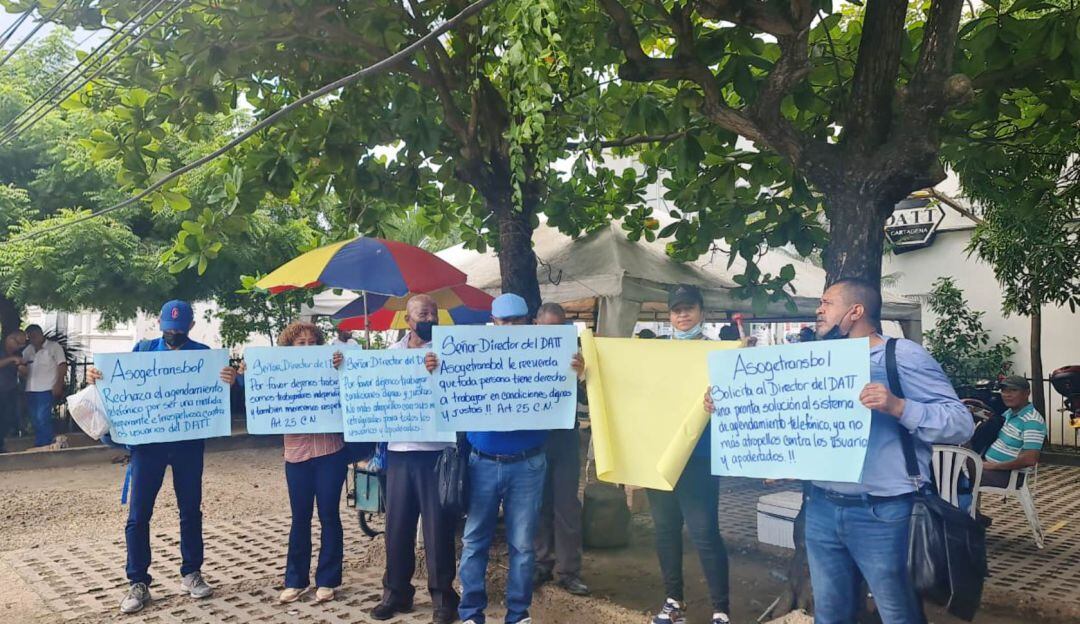 Asogetransbol
Rechaza el agendamiento
telefónico por ser una medida
imperante e inoperosa contra
los usuarios del DATT
Señor Director del DATT
Por favor dejenos trabajar
somos trabajadores independ
y tambien merecemos respe
Señor Director del DATT
Por favor dejenos trabajar
condiciones dignas y
justas!!
No más atropellos con
retrogradas para todos los
Usuarios y apoderados.
Señor Director del DATT
Asogetransbol le recuerda
que toda persona tiene derecho
a trabajar en condiciones dignas
y justas !! Art 25 C.N.
Asogetransbol
Solicita al Director del DATT
una pronta solución al sistema
de agendamiento telefónico, ya no
más atropellos contra los Usuario
y apoderados. !!
DATT
CARTAGENA